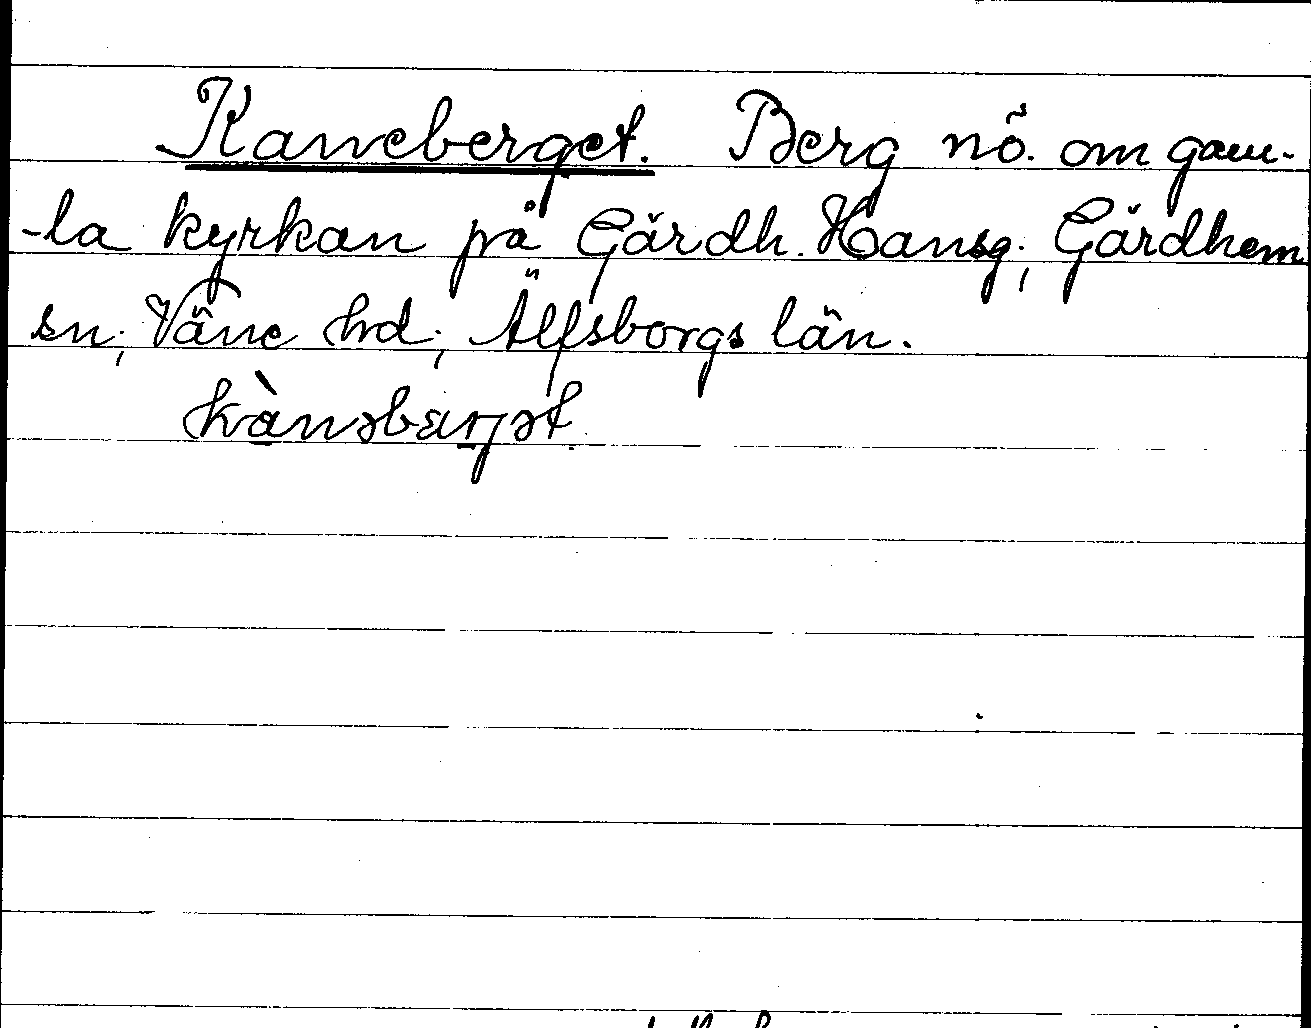 Kaneberget. Berg nö. om gam-
-la kyrkan på Gärdh. Hansg., Gärdhem
sn., Väne hd., Älfsborgs län.
kànəbærjət